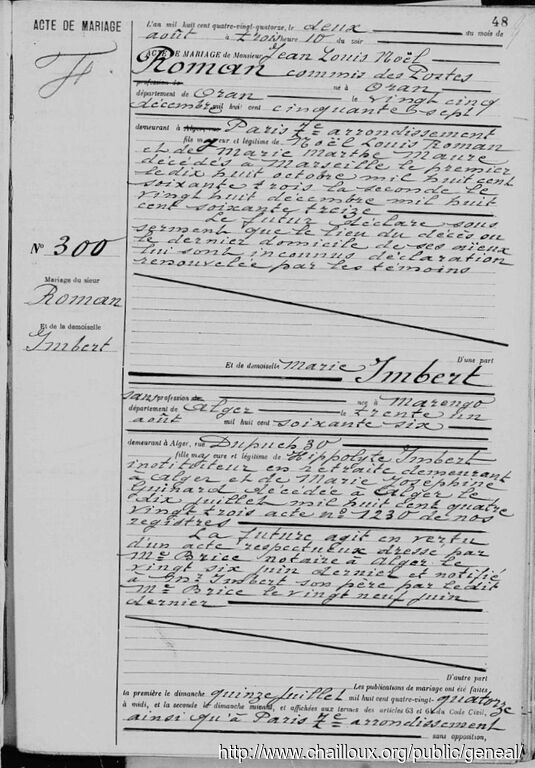 48
ACTE DE MARIAGE
L'an mil huit cent quatre-vingt-quatorze, le deux
du mois de
août à trois heure 10 du soir
ACTE DE MARIAGE de Monsieur Jean Louis Noël
Roman commis des Postes
profession de né à Oran
département de Oran le vingt cinq
décembre mil huit cent cinquante sept
demeurant à Alger, rue Paris 7e arrondissement
fils majeur et légitime de Noël Louis Roman
et de Marie Marthe Maure
décédés à Marseille le premier
le dix huit octobre mil huit cent
soixante trois la seconde le
vingt huit décembre mil huit
cent soixante treize
Le futur déclare sous
serment que le lieu du décès ou
le dernier domicile de ses aïeux
lui sont inconnus déclaration
renouvelée par les témoins
No 300
Mariage du sieur
Roman
Et de la demoiselle
Imbert
D'une part
Et de demoiselle Marie Imbert
sans profession de née à Marengo
département de Alger le trente un
août mil huit cent soixante six
demeurant à Alger, rue Dupuch 30
fille majeure et légitime de Hippolyte Imbert
instituteur en retraite demeurant
à Alger et de Marie Joséphine
Guinard décédée à Alger le
dix juillet mil huit cent quatre
vingt trois acte no 1230 de nos
registres
La future agit en vertu
d'un acte respectueux dressé par
Me Brice notaire à Alger le
vingt six juin dernier et notifié
à Imbert son père par ledit
Me Brice le vingt neuf juin
dernier
D'autre part
Les publications de mariage ont été faites,
la première le dimanche quinze juillet mil huit cent quatre-vingt-quatorze
à midi, et la seconde le dimanche suivant, et affichées aux termes des articles 63 et 64 du Code Civil,
ainsi qu'à Paris 7e arrondissement
sans opposition,
http://www.chailloux.org/public/geneal/